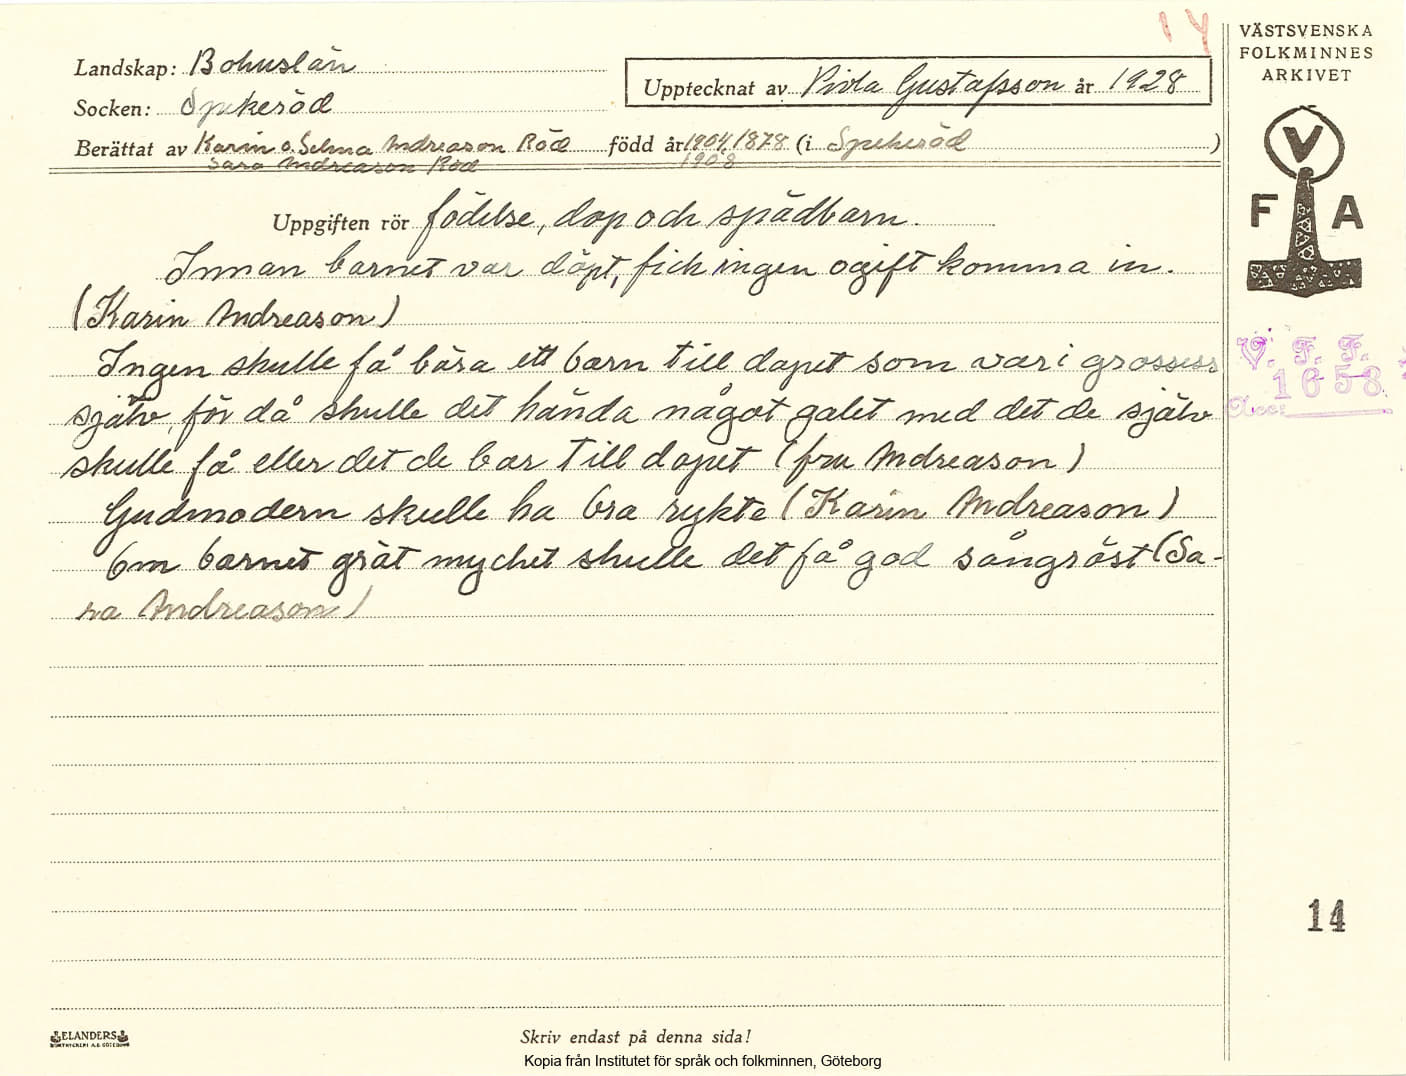 14
VÄSTSVENSKA
FOLKMINNES
ARKIVET
Landskap: Bohuslän
Upptecknat av Viola Gustafsson år 1928
Socken: Spekeröd
Berättat av Karin o. Selma Andreason Röd född år 1904, 1878 (i Spekeröd)
Sara Andreason Röd 1908
V
F A
Uppgiften rör födelse, dop och spädbarn.
Innan barnet var döpt, fick ingen ogift komma in.
(Karin Andreason)
Ingen skulle få bära ett barn till dopet som var i grossess
själv, för då skulle det hända något galet med det de själv
skulle få eller det de bar till dopet (fru Andreason)
Gudmodern skulle ha bra rykte (Karin Andreason)
Om barnet gråt mycket skulle det få god sångröst (Sa-
ra Andreason)
V. F. F.
1658
Acc:
14
ELANDERS
BOKTRYCKERI A.B. GÖTEBORG
Skriv endast på denna sida!
Kopia från Institutet för språk och folkminnen, Göteborg